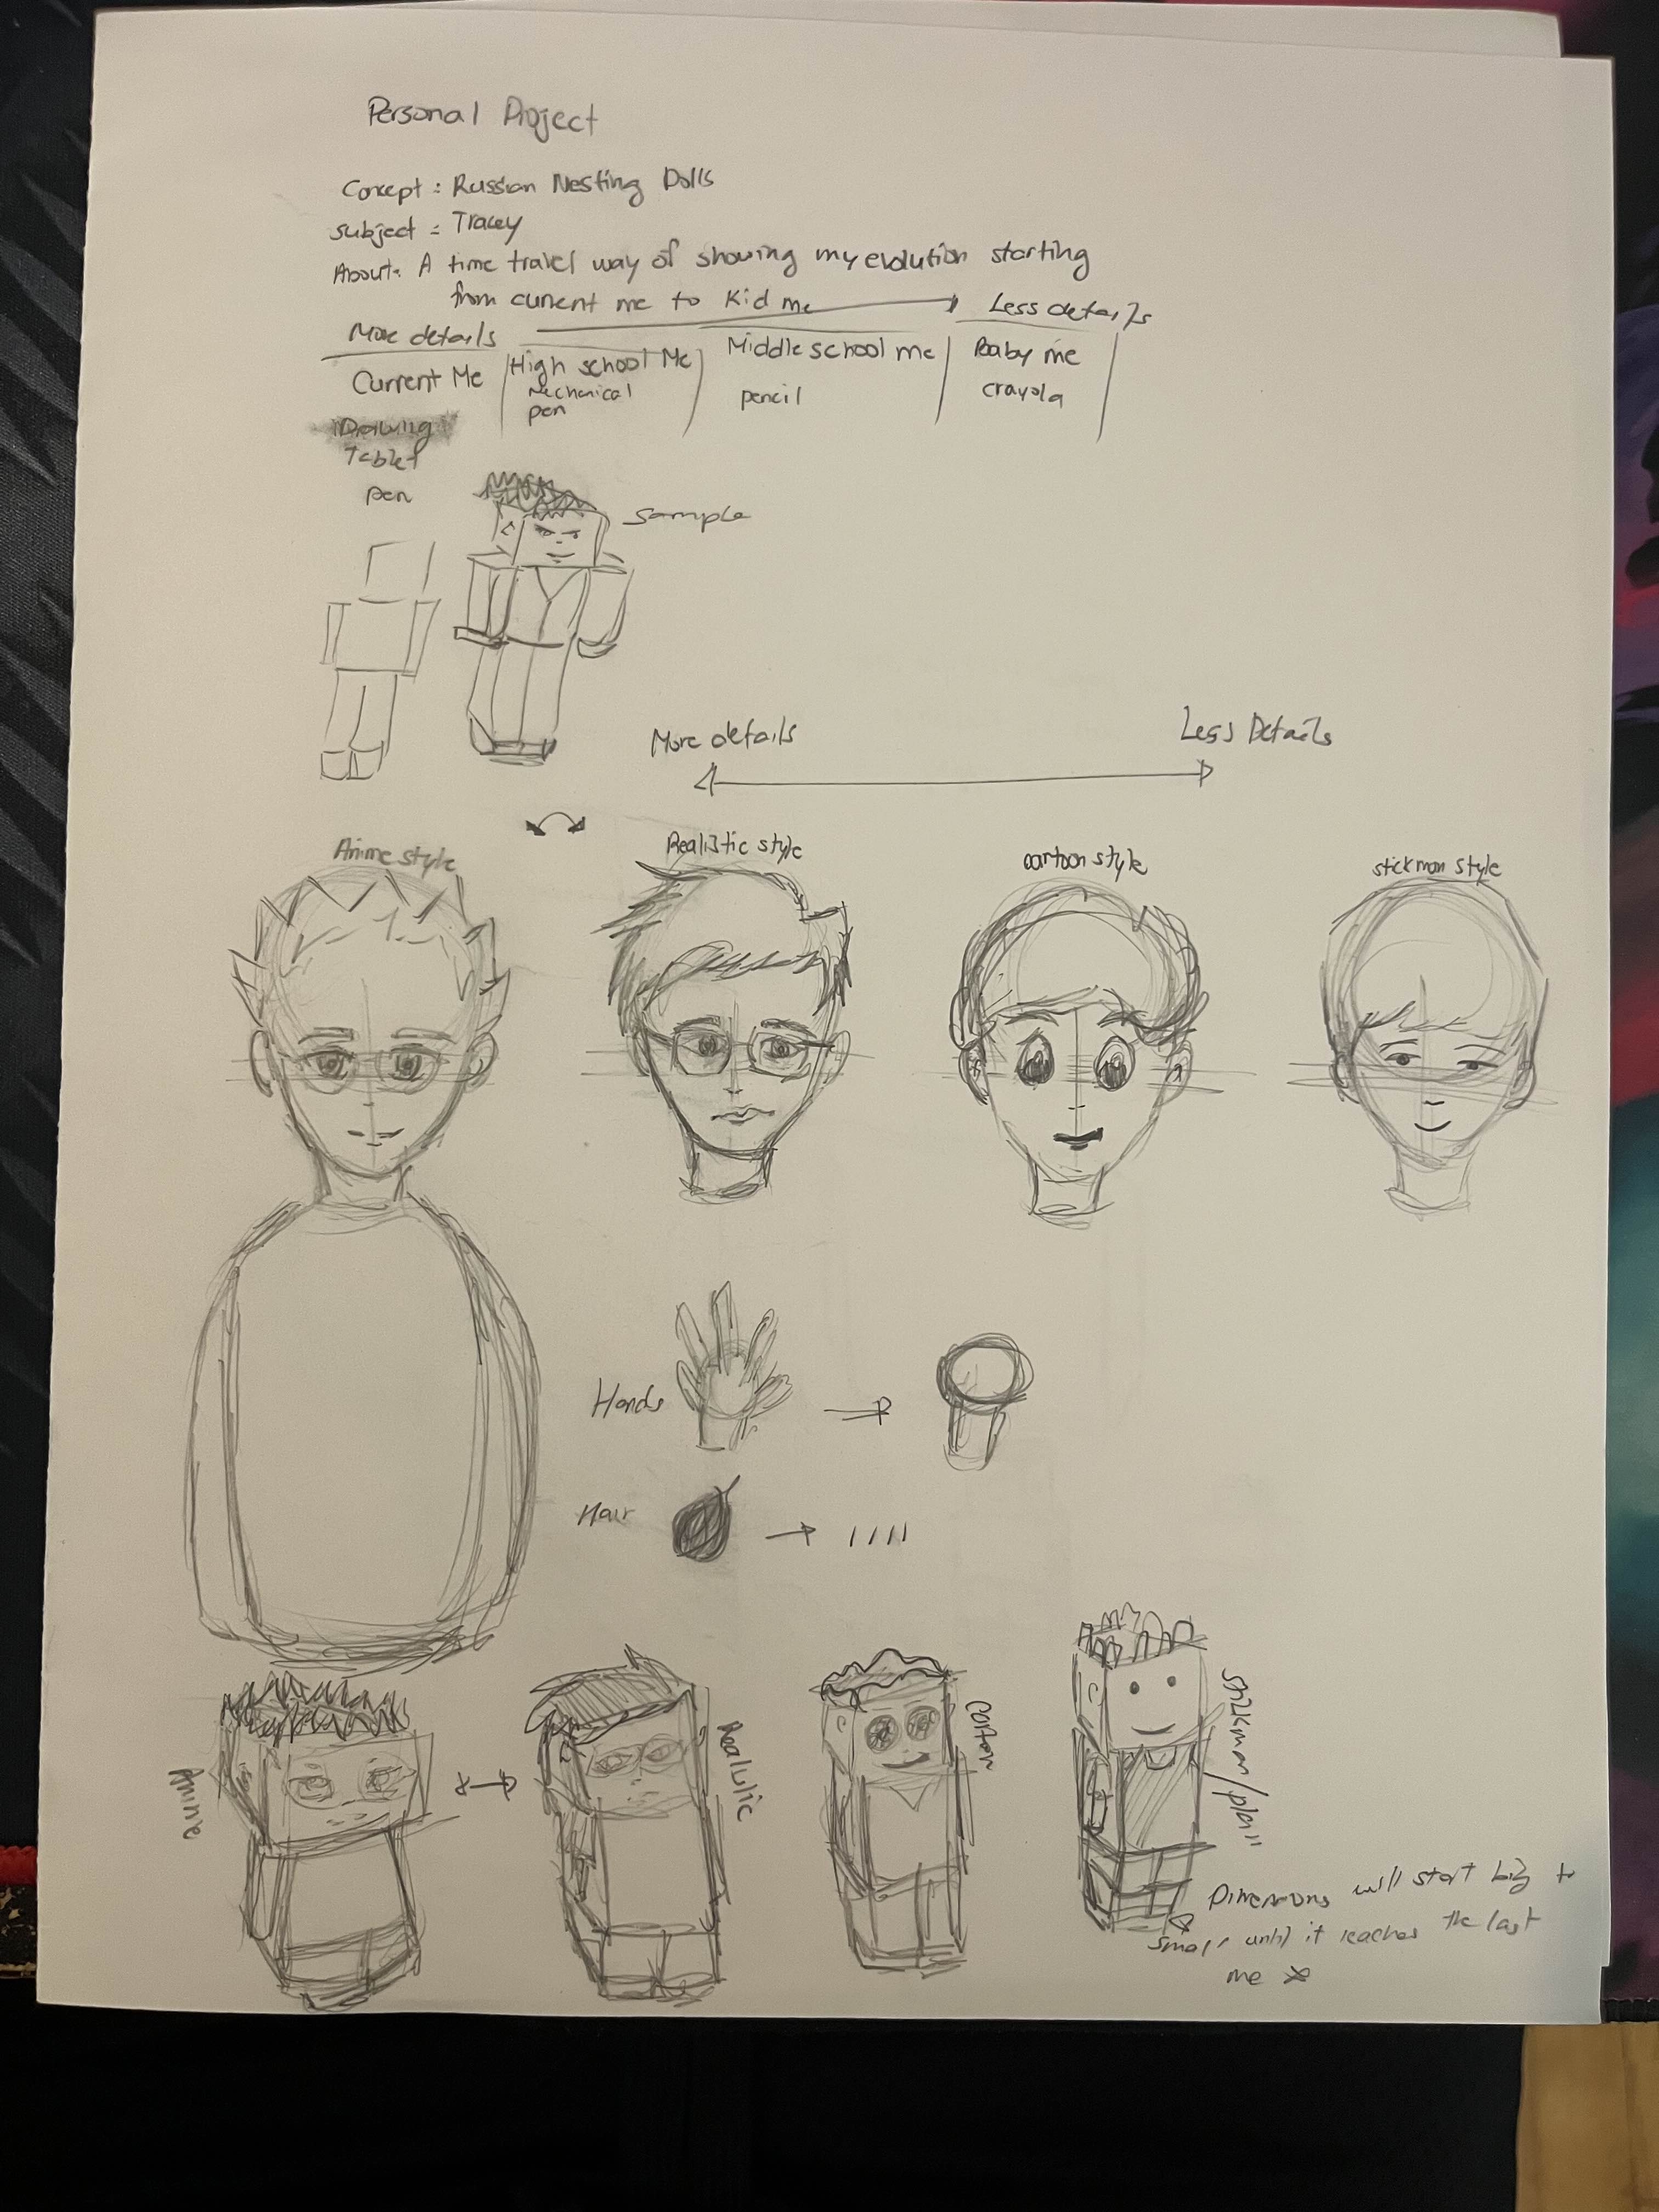 Personal Project
Concept : Russian Nesting Dolls
Subject = Tracey
About: A time travel way of showing my evolution starting
from current me to Kid me
More details
Less details
Current Me
High school Me
Middle school me
Baby me
Drawing
Tablet
pen
Mechanical
pen
pencil
crayola
Sample
More details
Less Details
Anime style
Realistic style
cartoon style
stickman style
Hands
Hair
Anime
Realistic
stickman/plain
Dimensions will start big to
small until it reaches the last
me